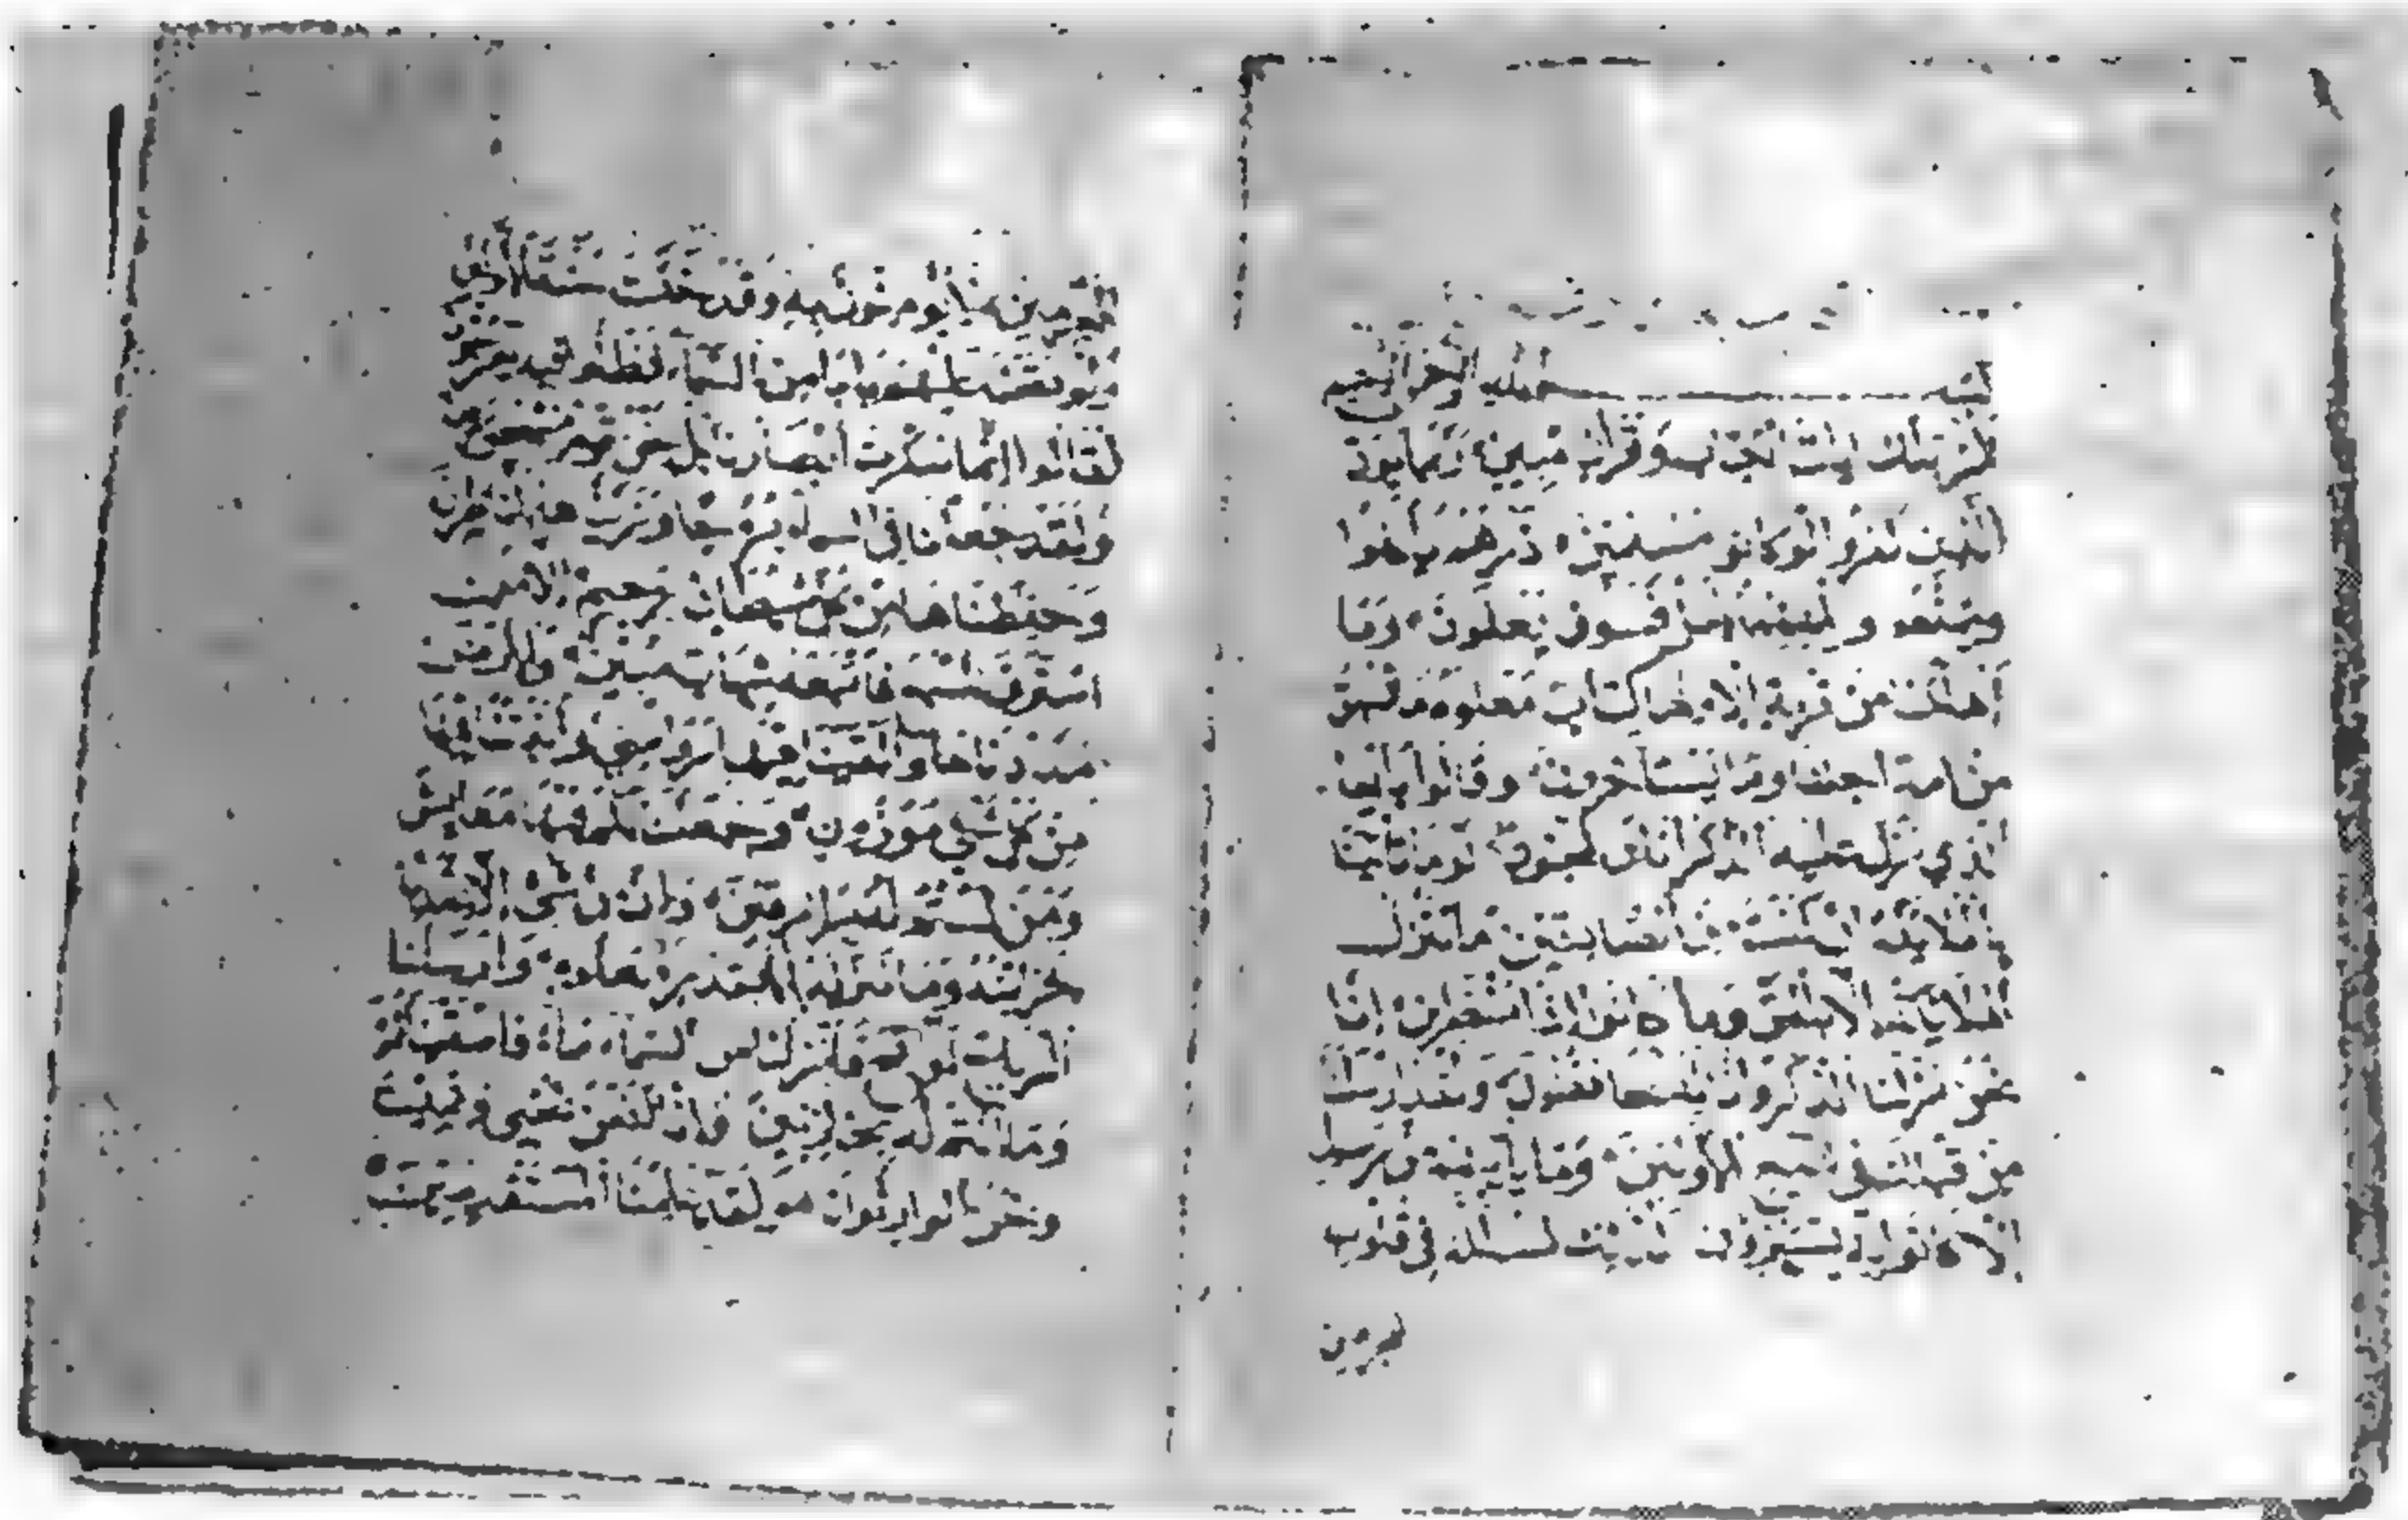 بسم الله الرحمن الرحيم
الر تلك ايت الكتب وقران مبين ربما يود
الذين كفروا لو كانوا مسلمين ذرهم ياكلوا
ويتمتعوا ويلههم الامل فسوف يعلمون وما
اهلكنا من قرية الا ولها كتاب معلوم ما تسبق
من امة اجلها وما يستأخرون وقالوا يايها
الذي نزل عليه الذكر انك لمجنون لو ما تأتينا
بالملايكة ان كنت من الصادقين ما ننزل
الملايكة الا بالحق وما كانوا اذا منظرين انا
نحن نزلنا الذكر وانا له لحافظون ولقد ارسلنا
من قبلك في شيع الاولين وما يأتيهم من رسول
الا كانوا به يستهزؤن كذلك نسلكه في قلوب
المجرمين
المجرمين لا يؤمنون به وقد خلت سنة الاولين
ولو فتحنا عليهم بابا من السماء فظلوا فيه يعرجون
لقالوا انما سكرت ابصارنا بل نحن قوم مسحورون
ولقد جعلنا في السماء بروجا وزيناها للناظرين
وحفظناها من كل شيطان رجيم الا من
استرق السمع فاتبعه شهاب مبين والارض
مددناها والقينا فيها رواسي وانبتنا فيها
من كل شيء موزون وجعلنا لكم فيها معايش
ومن لستم له برازقين وان من شيء الا عندنا
خزائنه وما ننزله الا بقدر معلوم وارسلنا
الرياح لواقح فانزلنا من السماء ماء فاسقيناكموه
وما انتم له بخازنين وانا لنحن نحيي ونميت
ونحن الوارثون ولقد علمنا المستقدمين